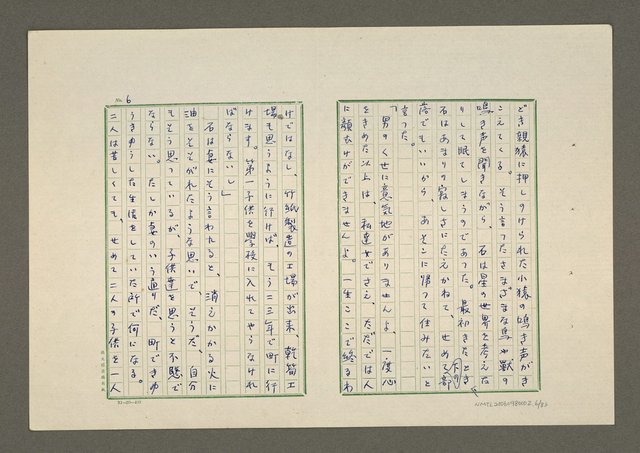 どき親猿に押しのけられた小猿の鳴き声がき
こえてくる。そう言ったさまざまな鳥や獣の
鳴き声を聞きながら、石は星の世界を考えな
がらして眠てしまうのであった。最初きたとき
石はあまりの寂しさにたえかねて、せめて部
下の
落でもいいから、あそこに帰って住みたいと
言った。
「男のくせに意気地がありませんよ、一度心
をきめた以上は、私達女でさえ、ただでは人
に顔むけができませんよ。一生ここで終るわ
けではなし、竹紙製造の工場が出来、乾筍工
場も思うように行けば、もう二三年で町に行
けます。第一子供を学校に入れてやらなけれ
ばならないし」
石は妻にそう言われると、消えかかる火に
油をそそがれたような思いで、そうだ、自分
もそう思っているが、子供達を思うと不憫で
ならない。たしか妻のいう通りだ、町できゅ
うきゅうした生活をしていた所で何になる。
二人は苦しくても、せめて二人の子供を一人
No. 6
NMTL20060980002 6/82